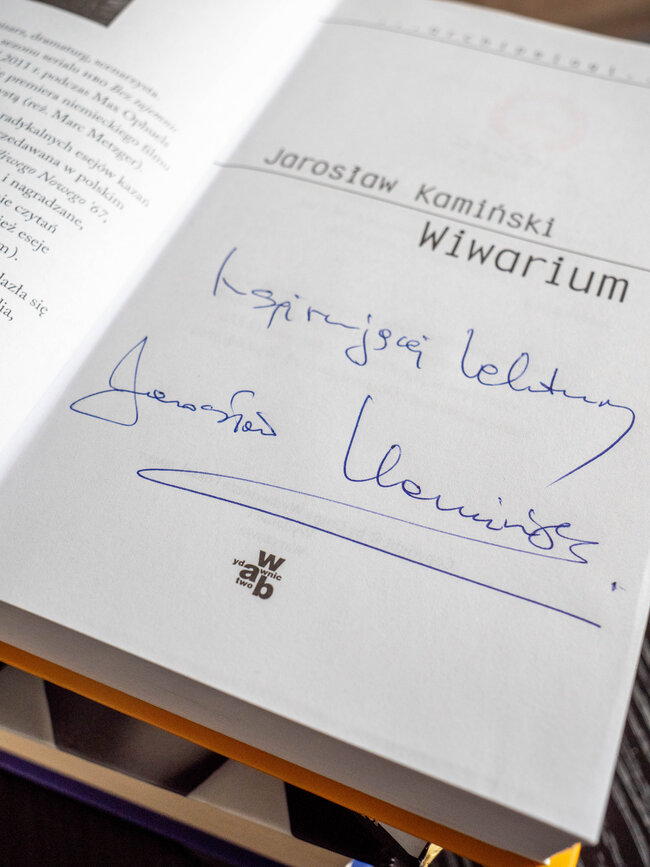 dramaturg, scenarzysta
sezonu serialu HBO Bez tajemnic
2011 r. podczas Max Ophuels
premiera niemieckiego filmu
(reż. Marc Metzger).
radykalnych esejów kazan
w polskim
Nowego '67,
i nagradzane,
czytań
eseje
się
...archipelagi...
Jarosław Kamiński
Wiwarium
Inspirującej lektury
Jarosław Kamiński
wydawnictwo
wab